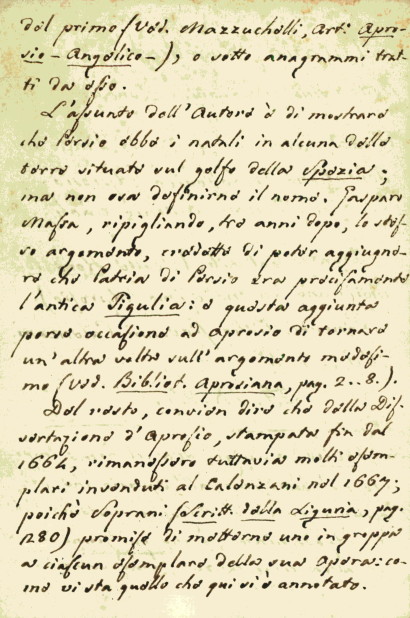 del primo (Ved. Mazzuchelli, Art. Apro-
sio - Angelico -), o sotto anagrammi trat-
ti da esso.
L'assunto dell'Autore è di mostrare
che Persio ebbe i natali in alcuna delle
terre situate sul golfo della Spezia;
ma non osa definirne il nome. Gasparo
Massa, ripigliando, tre anni dopo, lo stes-
so argomento, credette di poter aggiugne-
re che Patria di Persio era precisamente
l'antica Tigulia: e questa aggiunta
porse occasione ad Aprosio di tornare
un'altra volta sull'argomento medesi-
mo (Ved. Bibliot. Aprosiana, pag. 2..8.).
Del resto, convien dire che della Dis-
sertazione d'Aprosio, stampata fin dal
1664, rimanessero tuttavia molti esem-
plari invenduti al Calenzani nel 1667;
poichè Soprani (Scritt. della Liguria, pag.
280) promise di metterne uno in groppa
a ciascun esemplare della sua Opera: co-
me vista quello che qui si è annotato.